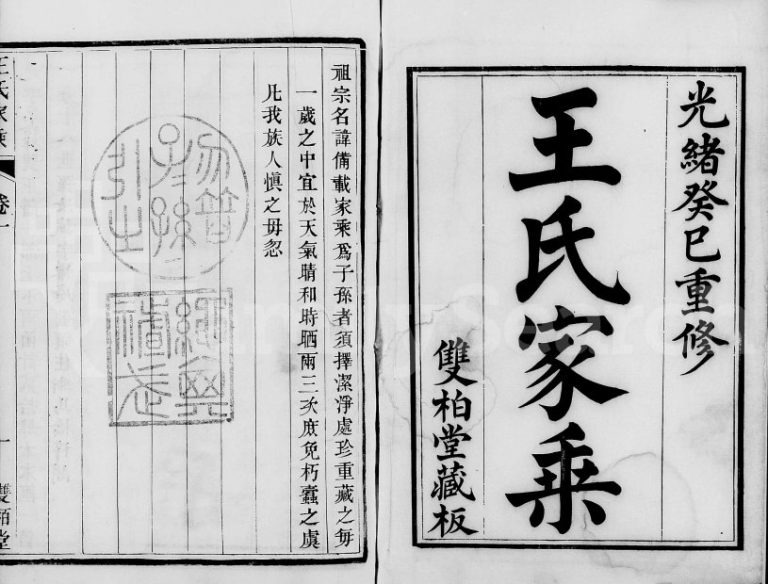 光緒癸巳重修
王氏家乘
雙柏堂藏板
祖宗名諱備載家乘爲子孫者須擇潔淨處珍重藏之每
一歲之中宜於天氣晴和時晒兩三次庶免朽蠹之虞
凡我族人愼之毋忽
王氏家乘
卷一
一
雙栢堂